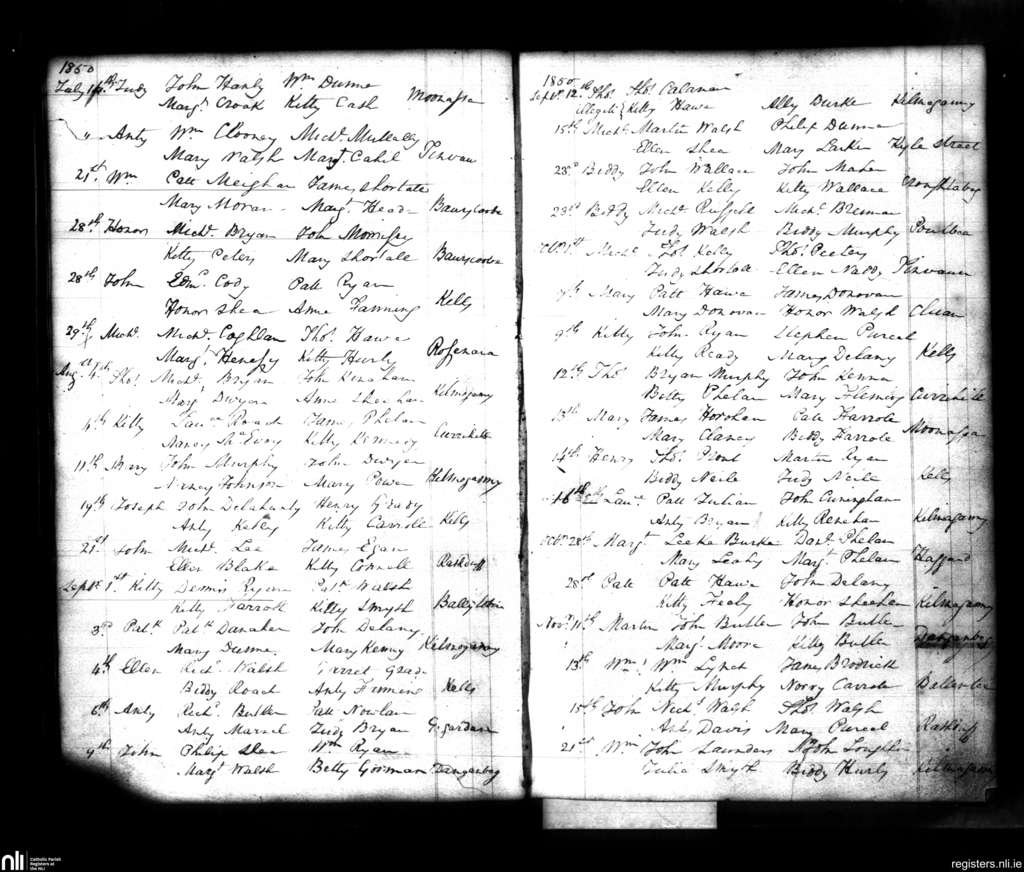 1850
July 14th Judy John Hanly Wm Dunne
Margt Croak Kitty Cash Moonassa
" Anty Wm Clooney Michl Mullally
Mary Walsh Margt Cahil Tinvau
21st Wm Patt Meighan James Shortale
Mary Moran Margt Headn Baunycorba
28th Honor Michl Bryan John Morrissy
Kitty Peters Mary Shortale Baunycorba
28th John Edmd Cody Patt Ryan
Honor Shea Anne Fanning Kells
29th Michl Michl Coghlan Thos Hawe
Margt Henesy Kitty Hurly Rossenara
Aug. 4th Thos Michl Bryan John
Margt Dwyer Anne Sheehan Kilmoganny
Kitty Roach James Phelan
Nancy Kitty Kennedy
11th Mary John Murphy John Dwyer
Nancy Johnson Mary Power Kilmogany
19th Joseph John Delahunty Henry Grady
Anty Kelly Kitty Carroll Kells
21st John Michl Lee James Egan
Ellen Blake Kitty Connell Rathduff
Septr 1st Kitty Dennis Ryan Patk Walsh
Kitty Farroll Kitty Smyth
3rd Patk Patk Danaher John Delany
Mary Dunne Mary Kenny Kilmogany
4th Ellen Richd Walsh Garret Grad
Biddy Roach Anty Kells
6th Anty Richd Butler Patt Nowlan
Anty Judy Bryan
9th John Philip Shea Wm Ryan
Margt Walsh Betty Gorman
1850
Septr 12th Thos Thos Calanan
Illegit { Kitty Hawe Ally Burke Kilmoganny
15th Michl Martin Walsh Philip Dunne
Ellen Shea Mary Larkin Kyle Street
23rd Biddy John Wallace John Maher
Ellen Kelly Kitty Wallace
23rd Biddy Michl Michl Brennan
Judy Walsh Biddy Murphy
Octr 1st Michl Thos Kelly Thos Peeters
Judy Shortale Ellen Naddy Tinvaun
7th Mary Patt Hawe James Donovan
Mary Donovan Honor Walsh Cluan
9th Kitty John Ryan Stephen Purcel
Kitty Ready Mary Delany Kells
12th Thos Bryan Murphy John Kenna
Betty Phelan Mary Fleming
13th Mary James Horohan Patt Farrole
Mary Clancy Biddy Farrole Moonassa
14th Henry Thos Prout Martin Ryan
Biddy Neile Judy Neile Kells
16th Laur Patt Julian John Cuninghan
Anty Bryan Kitty Renehan Kilmaganny
Octr 28th Margt Luke Burke Danl Phelan
Mary Leahy Margt Phelan Haggard
28th Patt Patt Hawe John Delany
Kitty Feely Honor Sheehan Kilmoganny
Novr 11th Martin John Butler John Butler
Margt Moore Kitty Butler
13th Wm Wm Lynch James Brodrick
Kitty Murphy Norry Carrole
15th John Nichs Walsh Thos Walsh
Anty Davis Mary Purcel Rathduff
21st Wm John Saunders John
Julia Smyth Biddy Hurly Kilmoganny
nli
Catholic Parish
Registers at
the NLI
registers.nli.ie